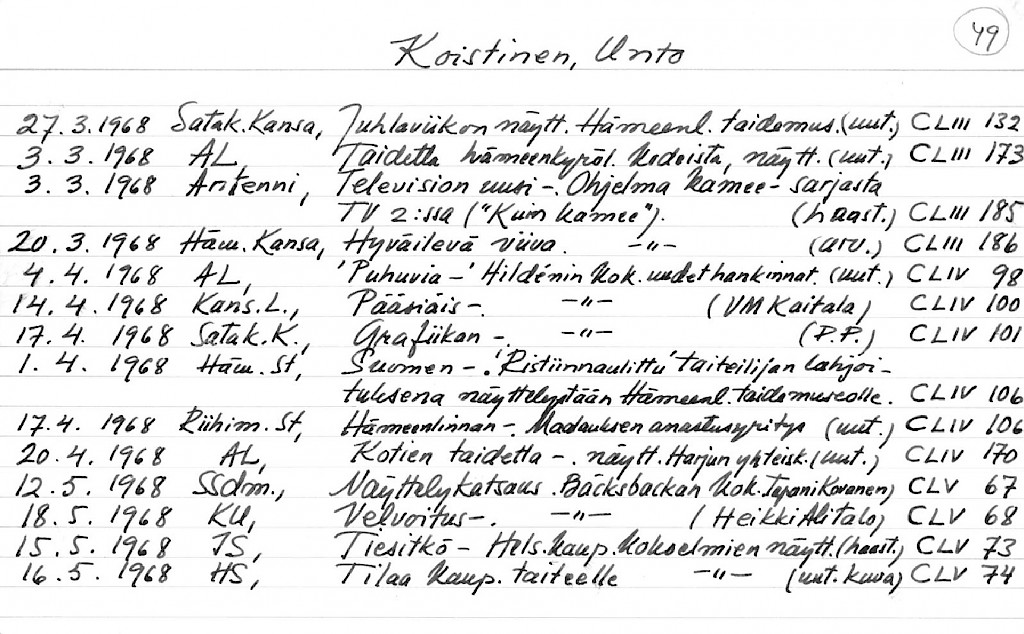 49
Koistinen, Unto
27.3.1968 Satak.Kansa, Juhlaviikon näytt. Hämeenl. taidemus.(uut.) CLIII 132
3.3.1968 AL, Taidetta hämeenkyröl. kodeista, näytt.(uut.) CLIII 173
3.3.1968 Antenni, Television uusi -. Ohjelma kamee- sarjasta
TV 2:ssa ("Kuin kamee"). (haast.) CLIII 185
20.3.1968 Häm.Kansa, Hyväilevä viiva. -"- (arv.) CLIII 186
4.4.1968 AL, 'Puhuvia -' Hildénin kok. uudet hankinnat.(uut.) CLIV 98
14.4.1968 Kans.L., Pääsiäis-. -"- (VM Kaitala) CLIV 100
17.4.1968 Satak.K., Grafiikan -. -"- (P.P.) CLIV 101
1.4.1968 Häm.St, Suomen -. 'Ristiinnaulittu' taiteilijan lahjoi-
tuksena näyttelystään Hämeenl. taidemuseolle. CLIV 106
17.4.1968 Riihim.St, Hämeenlinnan -. Madauksen anastusyritys (uut.) CLIV 106
20.4.1968 AL, Kotien taidetta -. näytt. Harjun yhteisk.(uut.) CLIV 170
12.5.1968 SSdm., Näyttelykatsaus. Bäcksbackan kok. Tapani Kovanen) CLV 67
18.5.1968 KU, Velvoitus-. -"- (Heikki Alitalo) CLV 68
15.5.1968 IS, Tiesitkö - Hels.kaup. kokoelmien näytt.(haast.) CLV 73
16.5.1968 HS, Tilaa kaup. taiteelle -"- (uut. kuva) CLV 74